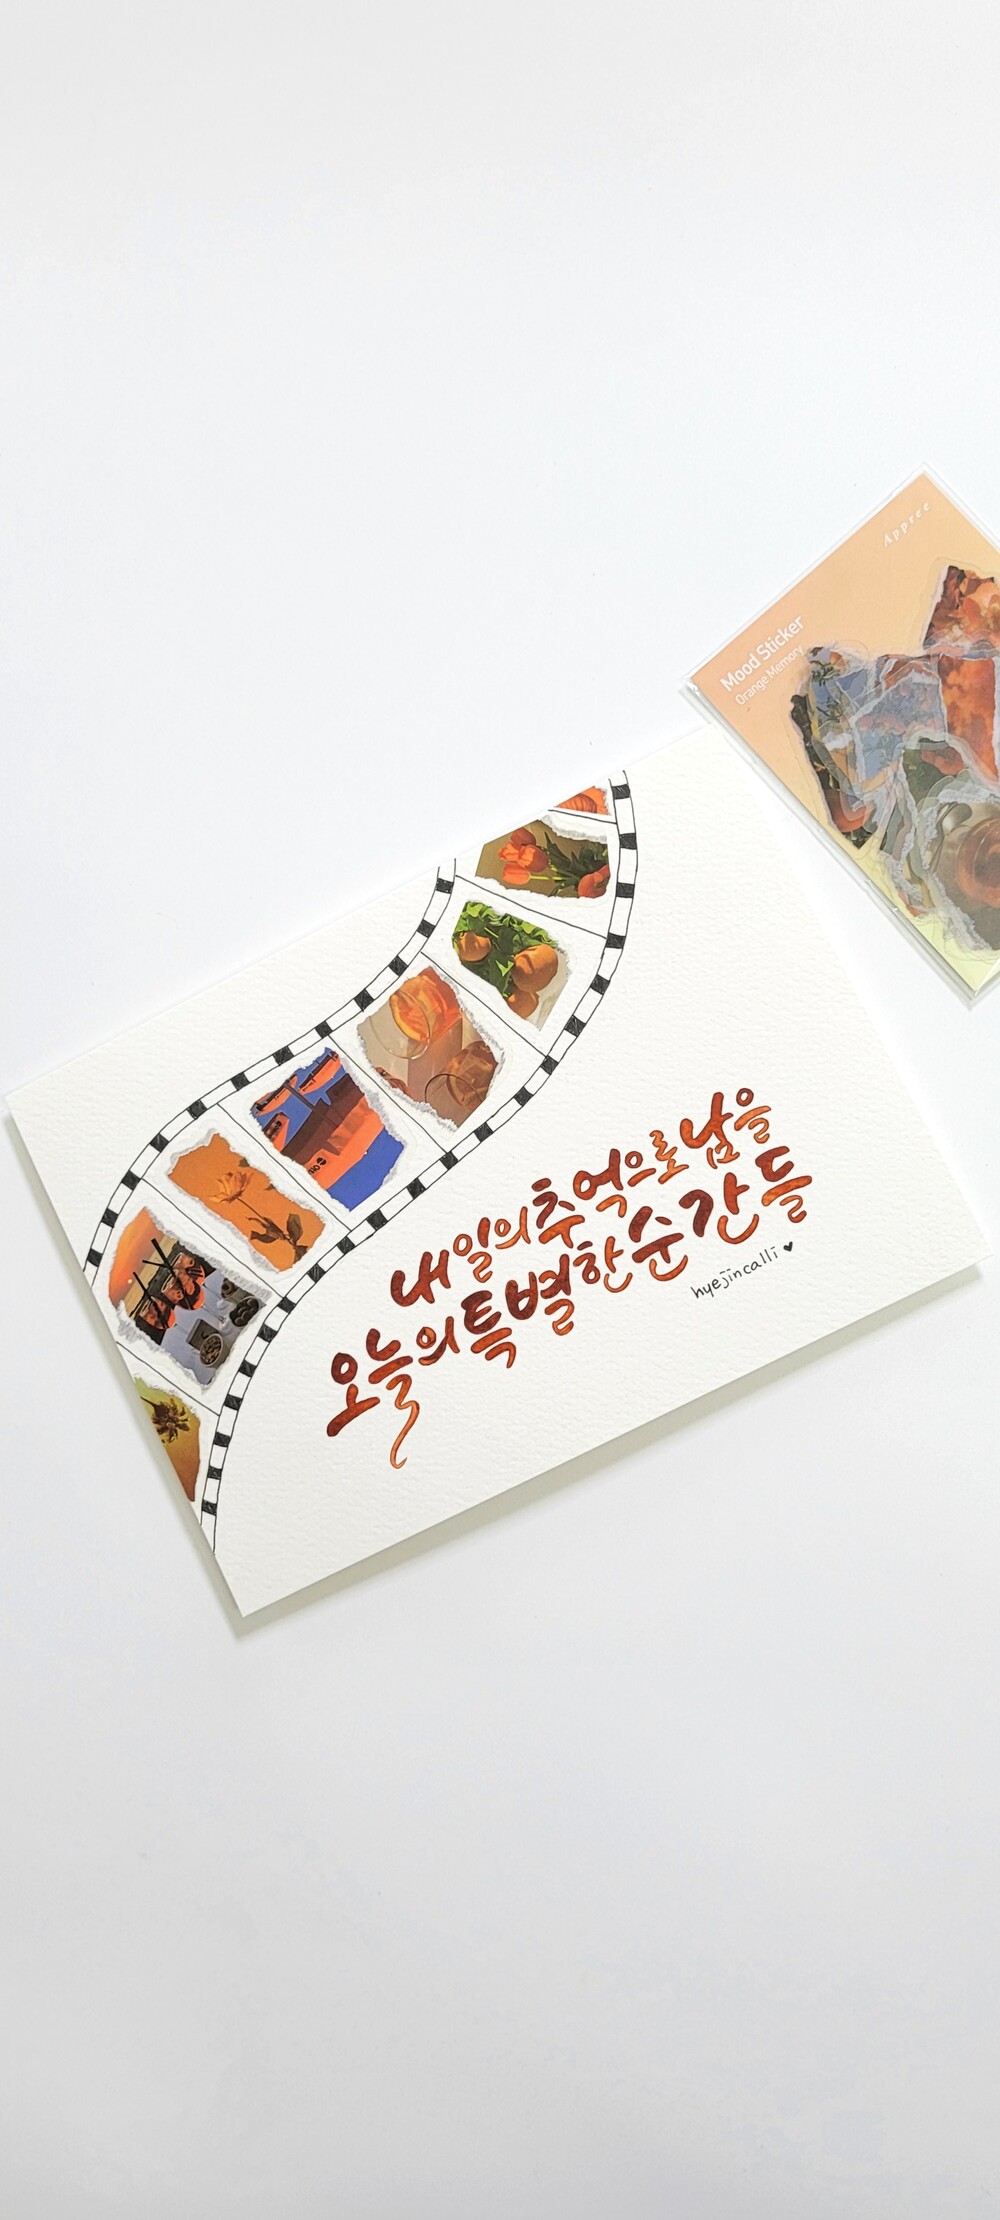 Appree
Mood Sticker
Orange Memory
내일의 추억으로 남을
오늘의 특별한 순간들
hyejincalli ♥